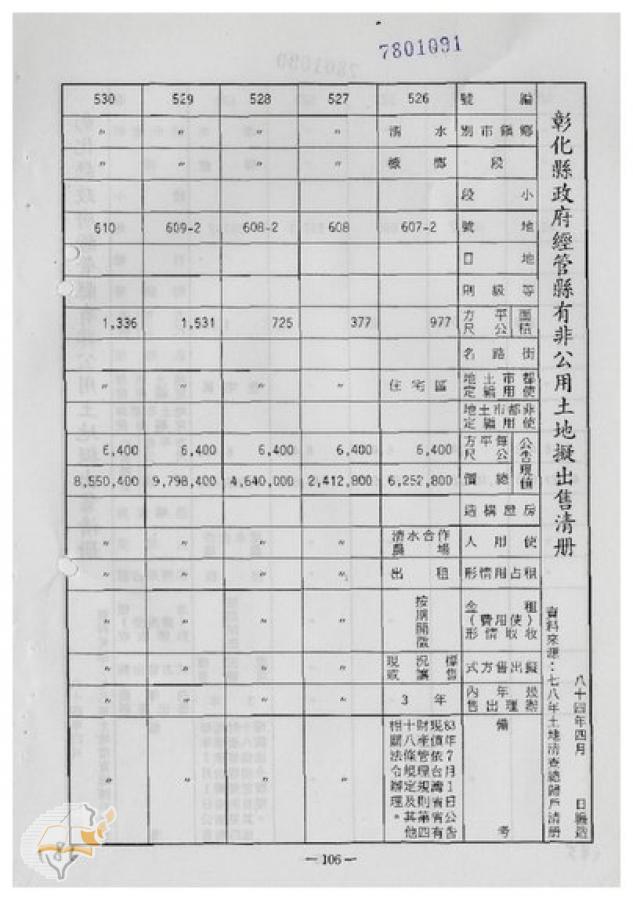 7801091
彰化縣政府經管縣有非公用土地擬出售清册
八十四年四月　日編造
資料來源：七八年土地清查總歸戶清册
編號 526 527 528 529 530
鄉鎮市別 清水 〃 〃 〃 〃
段 〃 〃 〃 〃
小段
地號 607-2 608 608-2 609-2 610
地目
等級則
面積 平方公尺 977 377 725 1,531 1,336
街路名
都市土地使用編定 住宅區 〃 〃 〃 〃
非都市土地使用編定
公告現值 每平方公尺 6,400 6,400 6,400 6,400 6,400
總價 6,252,800 2,412,800 4,640,000 9,798,400 8,550,400
房屋構造
使用人 清水合作農場 〃 〃 〃 〃
租占用情形 出租 〃 〃 〃 〃
租金（使用費）收取情形 按期開徵 〃 〃 〃 〃
擬出售方式 現況標售或讓售 〃 〃 〃 〃
幾年內辦理出售 3年 〃 〃 〃 〃
備考
83年7月1日公告
現值依台灣省省有
財產管理規則第四
十八條規定及其他
相關法令辦理。
〃 〃 〃 〃
—106—